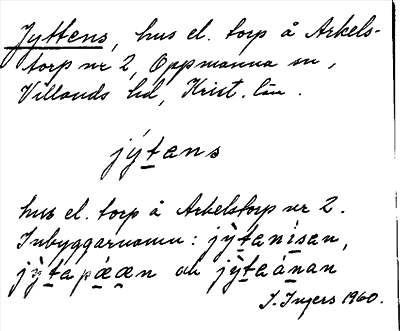 Jyttens, hus el. torp å Arkels-
torp nr 2, Oppmanna sn,
Villands hd, Krist. län.
jýt̲ans
hus el. torp å Arkelstorp nr 2.
Inbyggarnamn: jỳt̲anìsan,
jỳt̲apǽæn och jỳt̲aánan
I. Ingers 1960.